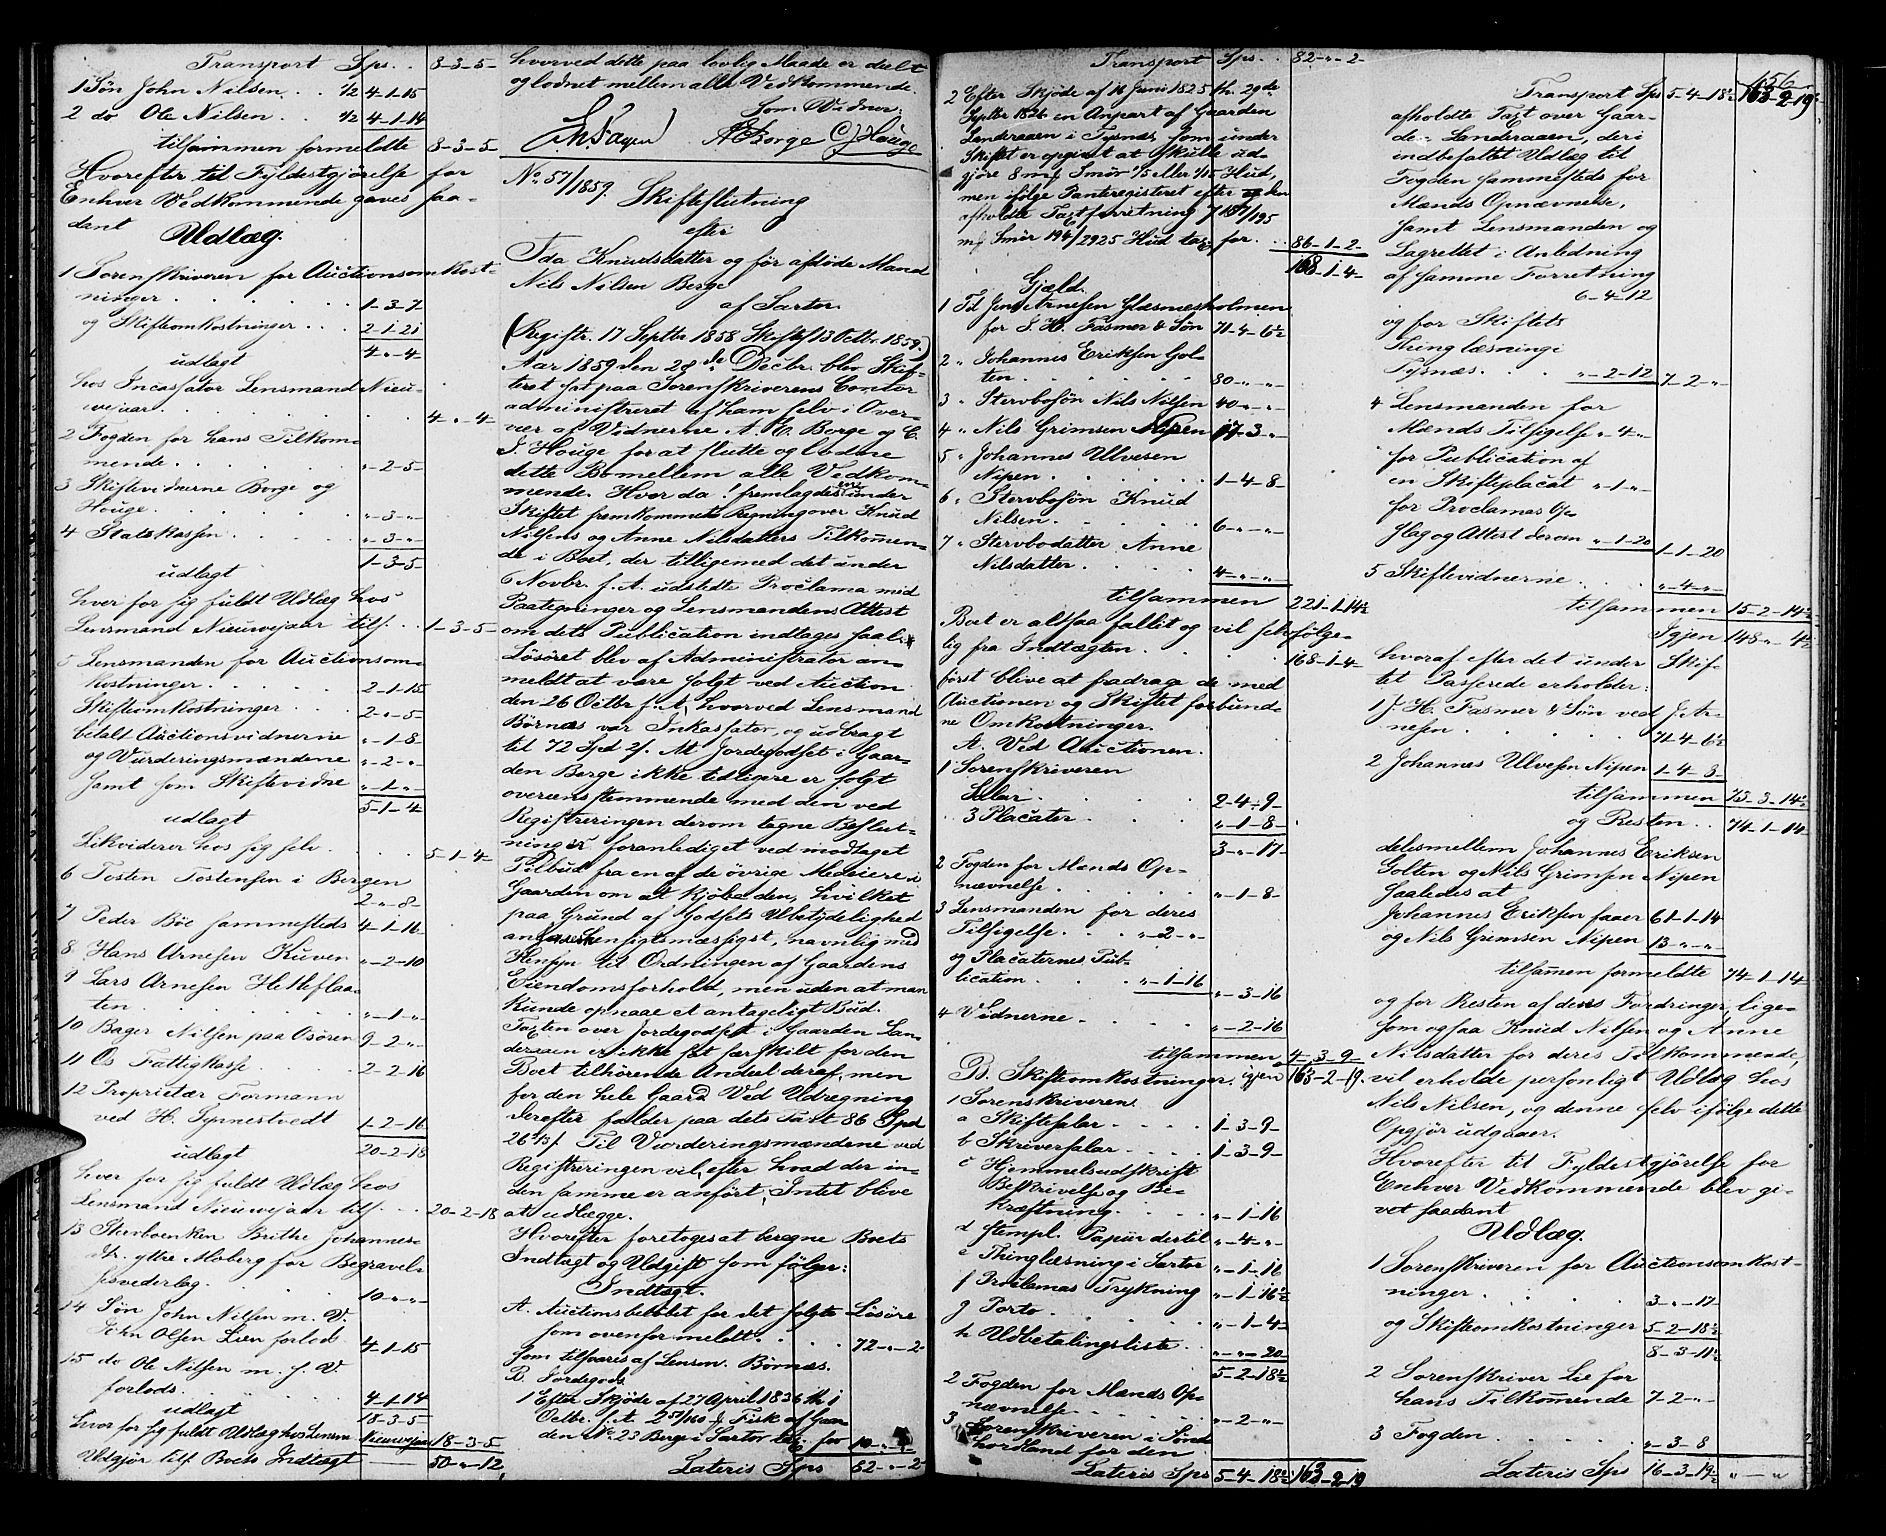 Transport Sps. . 8-3-5-
1 Søn John Nilsen . . 1/2 4-1-15
2 do Ole Nilsen . . 1/2 4-1-14
tilsammen formeldte 8-3-5
Hvorefter til Fyldestgjørelse for
Enhver Vedkommende gaves saa-
dant
Udlæg.
1 Sorenskriveren for Auctionsomkost-
ninger . . . 1-3-7
og Skifteomkostninger . . . 2-1-21
udlagt 4-"-4
hos Incassator Lensmand Nieu-
wejaar. . . . 4-"-4
2 Fogden for hans Tilkom-
mende . . . "-2-5
3 Skiftevidnerne Borge og
Houge . . . "-3-"
4 Statskassen . . . "-3-"
udlagt 1-3-5
hver for sig fuldt Udlæg hos
Lensmand Nieuwejaar tils. . . 1-3-5
5 Lensmanden for Auctionsom-
kostninger . . . 2-1-15
Skifteomkostninger . . . 2-"-5
betalt Auctionsvidnerne "-1-8
og Vurderingsmændene "-2-"
samt som Skiftevidne "-1-"
udlagt 5-1-4
Likviderer hos sig selv . . . 5-1-4
6 Tosten Tostensen i Bergen
2-"-8
7 Peder Böe sammesteds 4-1-16
8 Hans Arnesen Kuven "-2-10
9 Lars Arnesen Hetleflaa-
ten . . . "-1-"
10 Bager Nilsen paa Osören 9-2-"
11 Os Fattigkasse . . . 2-2-16
12 Proprietær Formann
ved H. Tynnestvedt 1-2-16
udlagt 20-2-18
hver for sig fuldt Udlæg hos
Lensmand Nieuwejaar tils. . . 20-2-18
13 Stervboenken Brithe Johannes-
dtr. yttre Moberg for Begravel-
sesvederlag . . . 10-"-"
14 Søn John Nilsen m. V.
John Olsen Lien forlods 4-1-15
15 do Ole Nilsen m. s. V.
forlods . . . 4-1-14
udlagt 18-3-5
hver for sig fuldt Udlæg hos Lensm. Nieuwejaar 18-3-5
Udgjør tils. Boets Indtægt 50-"-12
hvorved dette paa lovlig Maade er deelt
og lodnet mellem alle Vedkommende.
Som Vidner
A C Borge C J Houge
No. 57/1859.
Skifteslutning
efter
Ida Knudsdatter og før afdöde Mand
Nils Nilsen Berge
af Sartor.
(Registr. 17 Septbr 1858 Skiftes 13 Octbr. 1859.)
Aar 1859 den 28de Decbr. blev Skif-
teret sat paa Sorenskriverens Contor
administreret af ham selv i Over-
vær af Vidnerne A. C. Borge og C.
J. Houge for at slutte og lodne
dette Bo mellem alle Vedkom-
mende. Hvor da! fremlagdes en under
Skiftet fremkommen Regning over Knud
Nilsens og Anne Nilsdatters Tilkommen-
de i Boet, der tilligemed det under
6 Novbr. f. A. udstedte Proclama med
Paategninger og Lensmandens Attest
om dets Publication indtages saal.
Lösöret blev af Administrator an-
meldt at være solgt ved Auction
den 26 Octbr f. A. hvorved Lensmand
Börnes var Inkassator, og udbragt
til 72 Spd 2 s. At Jordegodset i Gaar-
den Berge ikke tidligere er solgt
overensstemmende med den ved
Registreringen derom tagne Beslut-
ning er foranlediget ved modtaget
Tilbud fra en af de övrige Medeiere i
Gaarden om at kjöbe den, hvilket
paa Grund af Godsets Ubetydelighed
ansees hensigtsmæssigst, navnlig med
Hensyn til Ordningen af Gaardens
Eiendomsforhold, men uden at man
kunde opnaae et antageligt Bud.
Taxten over Jordegodset i Gaarden Lan-
deraaen er ikke sat særskilt for den
Boet tilhörende Andeel deraf, men
for den hele Gaard. Ved Udregning
derefter falder paa dets Taxt 86 Spd
26 s. Til Vurderingsmændene ved
Registreringen vil, efter hvad der in-
den samme er anfört, Intet blive
at udlægge.
Hvorefter foretoges at beregne Boets
Indtægt og Udgift som fölger:
Indtægt.
A. Auctionsbelöbet for det solgte Lösöre
som ovenfor meldt . . . 72-"-2
som tilsvares af Lensm. Börnæs.
B. Jordegods
1 Efter Skjöde af 27 April 1836 th. 1
Octbr. s. A. 2 57/160 f Fisk af Gaar-
den No. 23 Berge i Sartor tax. for 10-"-"
Lateris Sps 82-"-2
Transport Sps . . 82-"-2-
2 Efter Skjøde af 14 Juni 1825 th. 29de
Septbr 1826 en Anpart af Gaarden
Landeraaen i Tysnes, som under
Skiftet er opgivet at skulle ud-
gjøre 8 mk Smör 1/5 eller 1/15 Hud,
men ifølge Panteregisteret efter den
afholdte Taxtforretning 7 187/195
mk Smör 194/2925 Hud tax. for . . 86-1-2-
168-1-4-
Gjæld.
1 Til Jens Arnesen Glesnæsholmen
for J. H. Fasmer & Søn 71-4-6 1/2
2 " Johannes Eriksen Gol-
ten . . . 80-"-"
3 " Stervbosön Nils Nilsen 40-"-"
4 " Nils Grimsen Nipen 17-3-"
5 " Johannes Ulvesen
Nipen . . . 1-4-8-
6 " Stervbosön Knud
Nilsen . . . 6-"-"
7 " Stervbodatter Anne
Nilsdatter . . . 4-"-"
tilsammen 221-1-14 1/2
Boet er altsaa fallit og vil selvfølge-
lig fra Indtægten . . . 168-1-4-
först blive at fradrage de med
Auctionen og Skiftet forbund-
ne Omkostninger.
A. Ved Auctionen.
1 Sorenskriveren
Salær . . . 2-4-9-
3 Placater . . . "-1-8-
3-"-17-
2 Fogden for Mænds Op-
nævnelse . . . "-1-8-
3 Lensmanden for deres
Tilsigelse . . "-2-"
og Placaternes Pub-
lication . . . "-1-16
"-3-16
4 Vidnerne . . . "-2-16
tilsammen 4-3-9-
B. Skifteomkostninger, igjen 163-2-19.
1 Sorenskriveren
a Skiftesalær . . . 1-3-9-
b Skriversalær . . . 1-3-9-
c Hjemmelsudskrift
Beskrivelse og Be-
kræftning . . . "-1-16
d stempl. Papiir dertil "-4-"
e Thinglæsning i Sartor "-1-16
f Proclamas Trykning "-1-16 1/2
g Porto . . . "-1-4-
h Udbetalingsliste . . "-"-20
5-2-18 1/2
2 Fogden for Mænds Op-
nævnelse . . . "-2-"
3 Sorenskriveren i Sönd-
hordland for den
Lateris Sps 5-4-18 1/2 163-2-19
456
Transport Sps 5-4-18 1/2 163-2-19
afholdte Taxt over Gaar-
den Landeraaen, deri
indbefattet Udlæg til
Fogden sammesteds for
Mænds Opnævnelse,
samt Lensmanden og
Lagrettet i Anledning
af samme Forretning
6-4-12
og for Skiftets
Thinglæsning i
Tysnæs . . . "-2-12 7-2-"
4 Lensmanden for
Mænds Tilsigelse "-4-"
for Publication af
en Skifteplacat "-1-"
for Proclamas Op-
slag og Attest derom "-1-20
1-1-20
5 Skiftevidnerne . . . "-4-"
tilsammen 15-2-14 1/2
Igjen 148-"-4 1/2
hvoraf efter det under Skif-
tet Passerede erholder:
1 J. H. Fasmer & Søn ved J. Ar-
nesen . . . 71-4-6 1/2
2 Johannes Ulvesen Nipen 1-4-8
tilsammen 73-3-14 1/2
og Resten . . 74-1-14
deles mellem Johannes Eriksen
Golten og Nils Grimsen Nipen
saaledes at
Johannes Eriksen faaer 61-1-14
og Nils Grimsen Nipen 13-"-"
tilsammen formeldte 74-1-14
og for Resten af deres Fordringer, lige-
som ogsaa Knud Nilsen og Anne
Nilsdatter for deres Tilkommende,
vil erholde personligt Udlæg hos
Nils Nilsen, og denne selv ifölge dette
Opgjör udgaaer.
Hvorefter til Fyldestgjørelse for
Enhver Vedkommende blev gi-
vet saadant
Udlæg.
1 Sorenskriveren for Auctionsomkost-
ninger . . . 3-"-17
og Skifteomkostninger 5-2-18 1/2
8-3-11 1/2
2 Sorenskriver Lie for
hans Tilkommende 7-2-"
3 Fogden . . . "-3-8
Lateris Sps 16-3-19 1/2 "-"-"